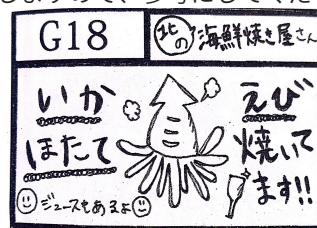 G18
北の海鮮焼き屋さん
いか
ほたて
えび
焼いて
ます!!
ジュースもあるよ